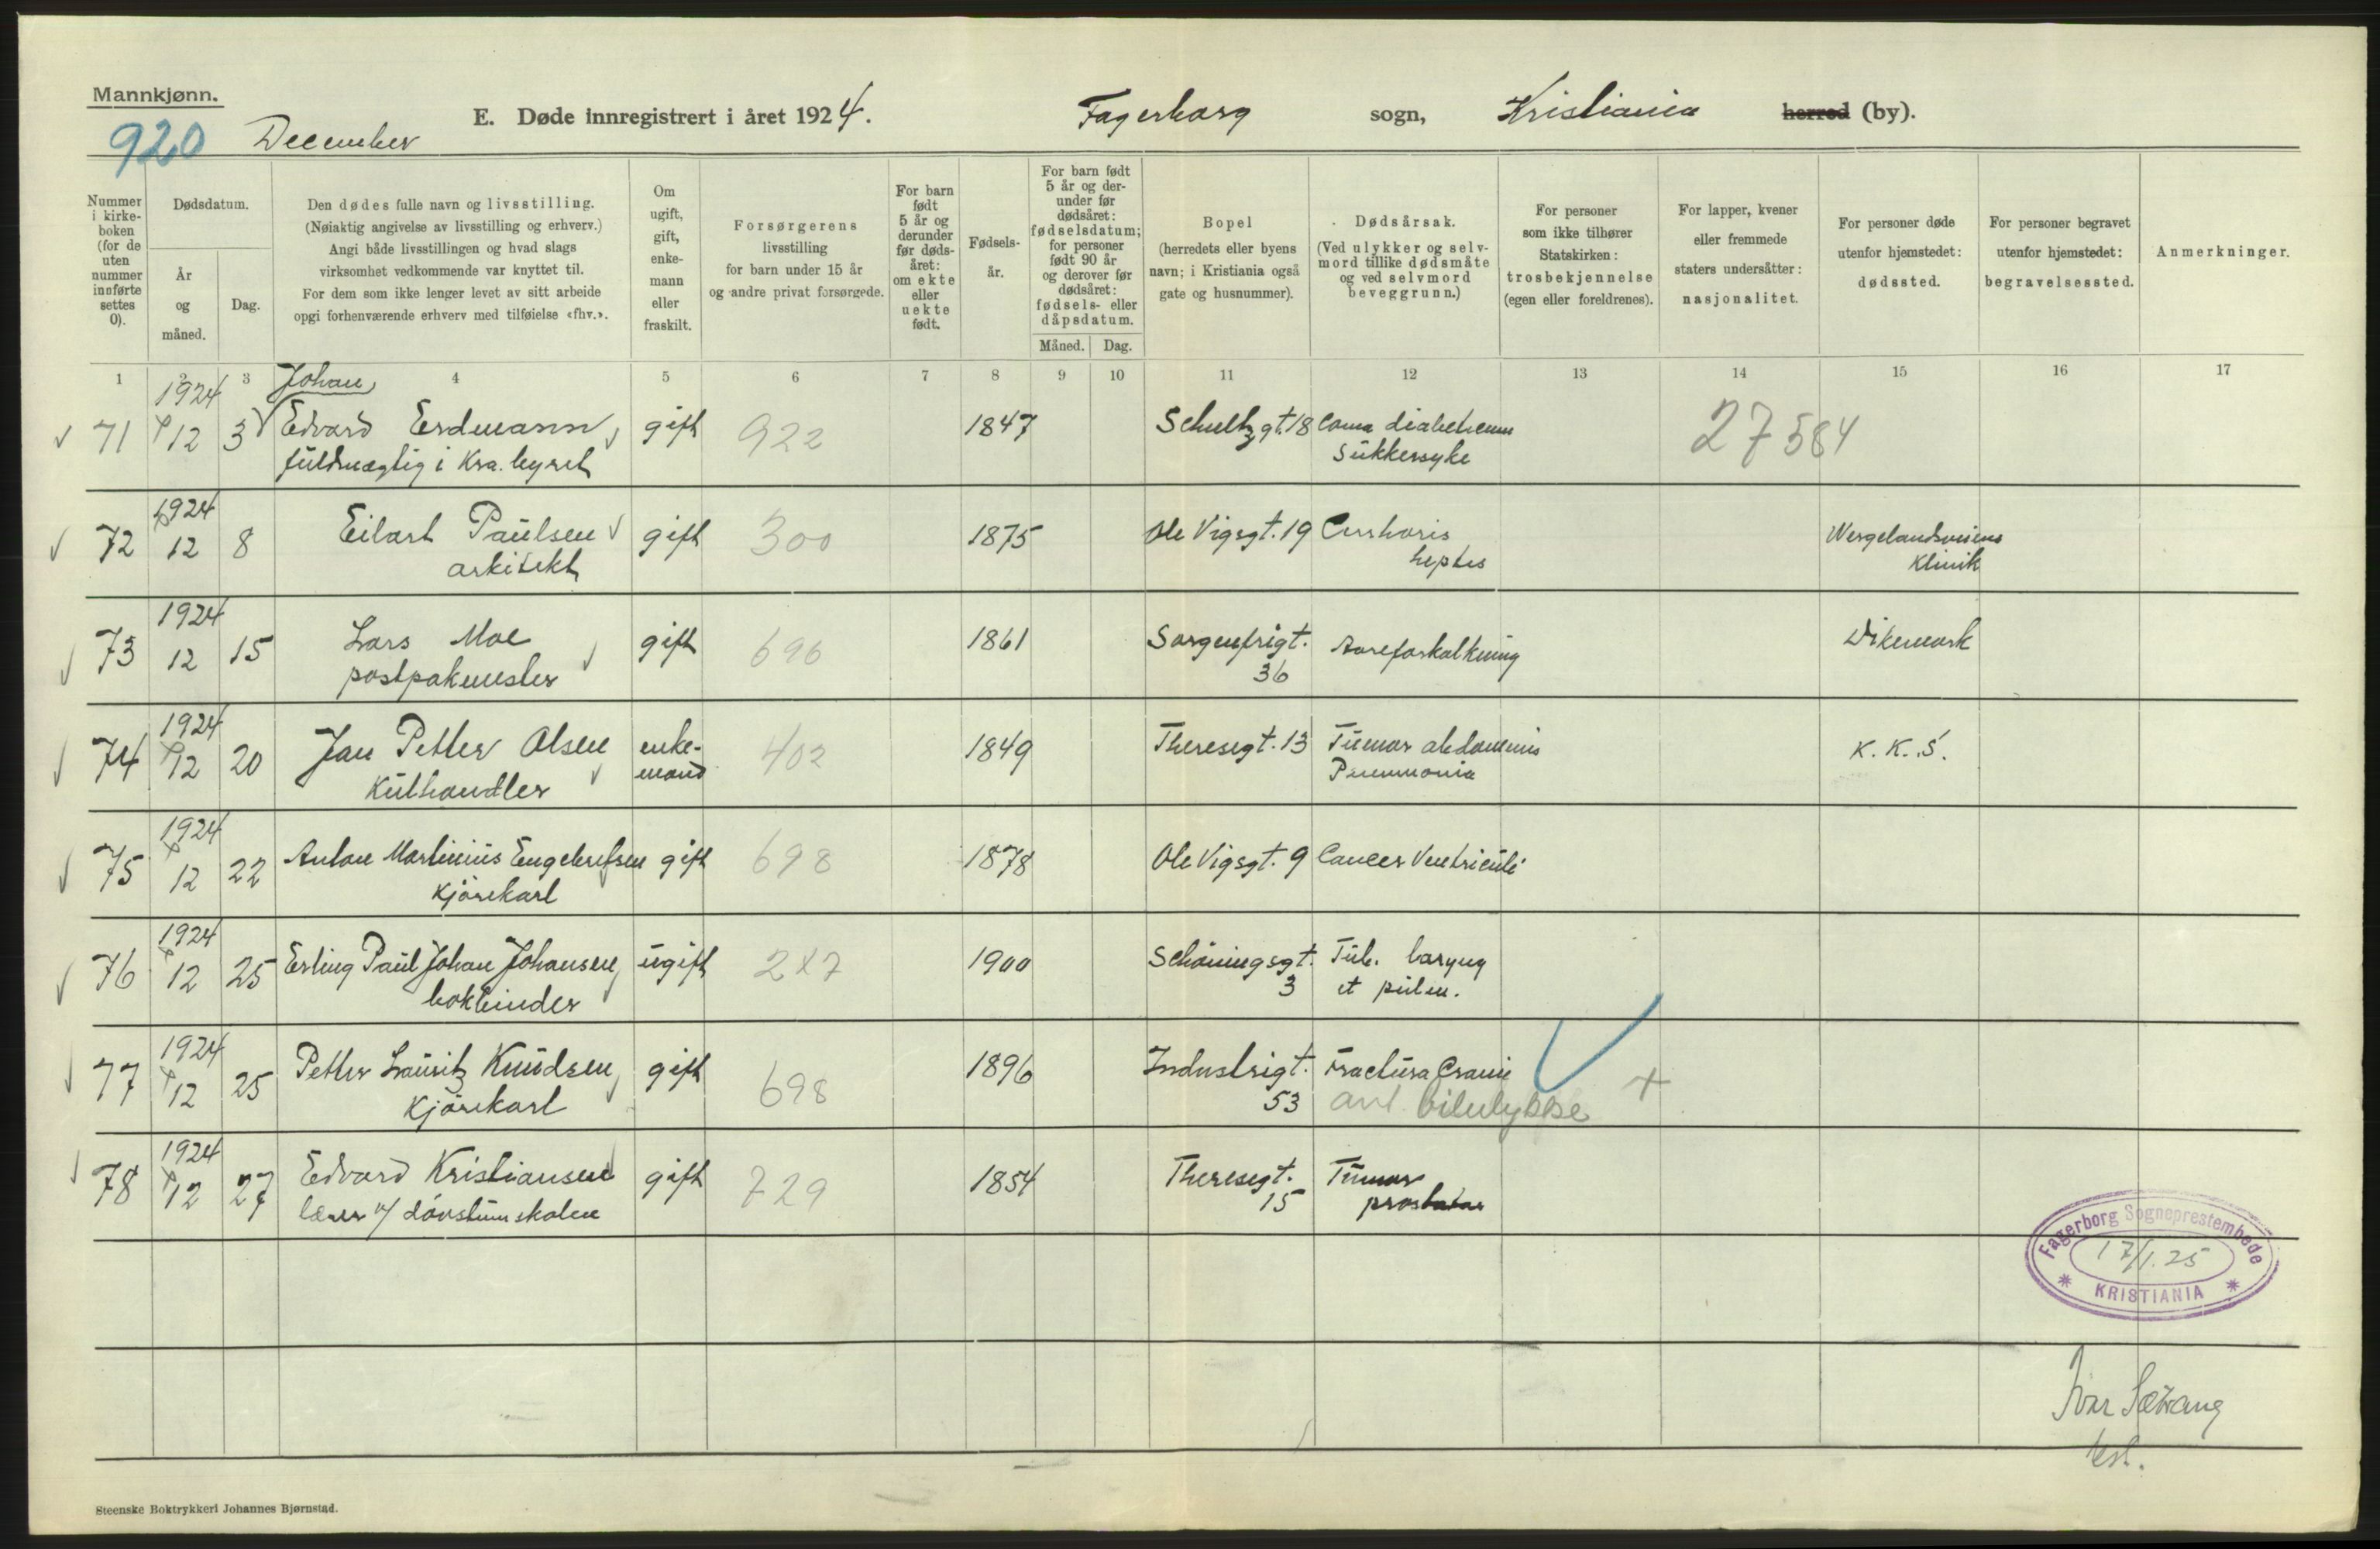 Mannkjønn.
920 December
E. Døde innregistrert i året 1924.
Fagerborg sogn, Kristiania herred (by).
Nummer i kirke-boken (for de uten nummer innførte settes 0).
Dødsdatum.
År og måned.
Dag.
Den dødes fulle navn og livsstilling.
(Nøiaktig angivelse av livsstilling og erhverv.)
Angi både livsstillingen og hvad slags
virksomhet vedkommende var knyttet til.
For dem som ikke lenger levet av sitt arbeide
opgi forhenværende erhverv med tilføielse «fhv.».
Om ugift, gift, enke-mann eller fraskilt.
Forsørgerens
livsstilling
for barn under 15 år
og andre privat forsørgede.
For barn født 5 år og derunder før døds-året: om ekte eller uekte født.
Fødsels-år.
For barn født 5 år og der-under før dødsåret: fødselsdatum; for personer født 90 år og derover før dødsåret: fødsels- eller dåpsdatum.
Måned. Dag.
Bopel
(herredets eller byens
navn; i Kristiania også
gate og husnummer).
Dødsårsak.
(Ved ulykker og selv-
mord tillike dødsmåte
og ved selvmord
beveggrunn.)
For personer
som ikke tilhører
Statskirken:
trosbekjennelse
(egen eller foreldrenes).
For lapper, kvener
eller fremmede
staters undersåtter:
nasjonalitet.
For personer døde
utenfor hjemstedet:
dødssted.
For personer begravet
utenfor hjemstedet:
begravelsessted.
Anmerkninger.
1 2 3 4 5 6 7 8 9 10 11 12 13 14 15 16 17
1924 Johan
71 12 3 Edvard Erdmann gift 922 1847 Schultzgt. 18 Coma diabeticum 27584
fuldmægtig i Kra. byret Sukkersyke
1924
72 12 8 Eilart Paulsen gift 300 1875 Ole Vigsgt. 19 Cirrhosis Wergelandsveiens
arkitekt heptis Klinik
1924
73 12 15 Lars Moe gift 696 1861 Sorgenfrigt. Aareforkalkning Dikemark
postpakmester 36
1924
74 12 20 Jan Petter Olsen enke- 402 1849 Theresegt. 13 Tumor abdominis K. K. S.
Kulhandler mand Pneumonia
1924
75 12 22 Anton Martinius Engebretsen gift 698 1878 Ole Vigsgt. 9 Cancer Ventriculi
Kjørekarl
1924
76 12 25 Erling Paul Johan Johansen ugift 2X7 1900 Schøningsgt. Tub. laryng
bokbinder 3 et pulm.
1924
77 12 25 Petter Lauritz Knudsen gift 698 1896 Industrigt. Fractura Cranii +
Kjørekarl 53 ant. bilulykke
1924
78 12 27 Edvard Kristiansen gift 729 1854 Theresegt. Tumor
lærer v/ døvstumskolen 15 prostatae
Fagerborg Sogneprestembede
17/1.25
KRISTIANIA
Ivar Sæwang
Steenske Boktrykkeri Johannes Bjørnstad.